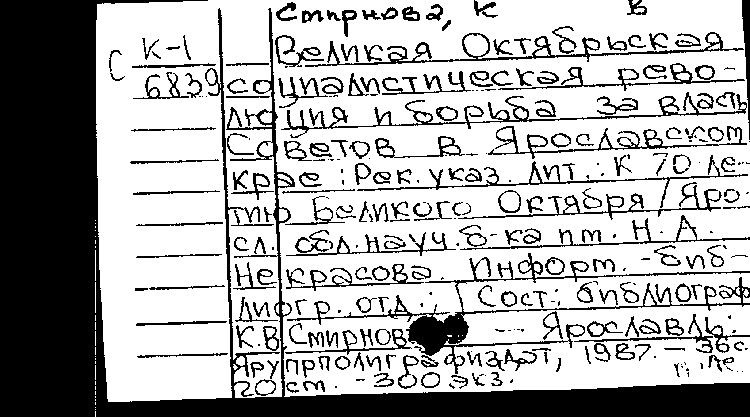 Смирнова, К В
С К-1 Великая Октябрьская
6839 социалистическая рево-
люция и борьба за власть
Советов в Ярославском
крае : Рек. указ. лит. : К 70 ле-
тию Великого Октября / Яро-
сл. обл. науч. б-ка им. Н. А.
Некрасова. Информ. -биб-
лиогр. отд. ; [Сост.: библиограф
К.В. Смирнов — Ярославль:
Ярупрполиграфиздат, 1987. — 36 с.
20 см. - 300 экз.